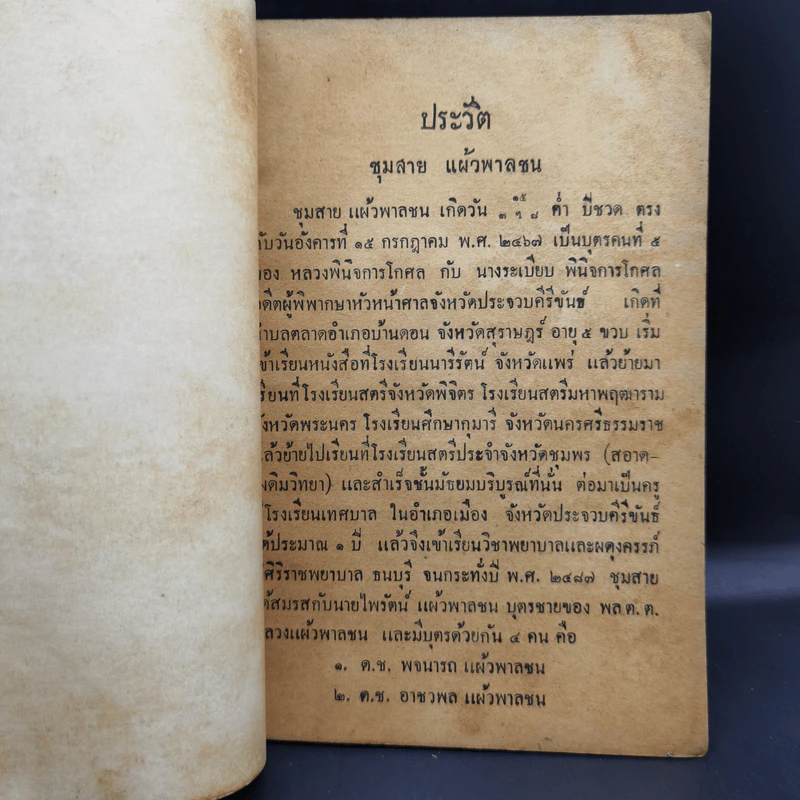 ประวัติ
ชุมสาย แผ้วพาลชน
ชุมสาย แผ้วพาลชน เกิดวัน ค่ำ ปีชวด ตรง
กับวันอังคารที่ ๑๕ กรกฎาคม พ.ศ. ๒๔๖๗ เป็นบุตรคนที่ ๕
ของ หลวงพินิจการโกศล กับ นางระเบียบ พินิจการโกศล
อดีตผู้พิพากษาหัวหน้าศาลจังหวัดประจวบคีรีขันธ์ เกิดที่
ตำบลตลาดอำเภอบ้านดอน จังหวัดสุราษฎร์ อายุ ๕ ขวบ เริ่ม
เข้าเรียนหนังสือที่โรงเรียนนารีรัตน์ จังหวัดแพร่ แล้วย้ายมา
เรียนที่โรงเรียนสตรีจังหวัดพิจิตร โรงเรียนสตรีมหาพฤฒาราม
จังหวัดพระนคร โรงเรียนศึกษากุมารี จังหวัดนครศรีธรรมราช
แล้วย้ายไปเรียนที่โรงเรียนสตรีประจำจังหวัดชุมพร (สอาด-
งดิมวิทยา) และสำเร็จชั้นมัธยมบริบูรณ์ที่นั่น ต่อมาเป็นครู
ที่โรงเรียนเทศบาล ในอำเภอเมือง จังหวัดประจวบคีรีขันธ์
ได้ประมาณ ๑ ปี แล้วจึงเข้าเรียนวิชาพยาบาลและผดุงครรภ์
ที่ศิริราชพยาบาล ธนบุรี จนกระทั่งปี พ.ศ. ๒๔๘๗ ชุมสาย
ได้สมรสกับนายไพรัตน์ แผ้วพาลชน บุตรชายของ พล.ต.ต.
หลวงแผ้วพาลชน และมีบุตรด้วยกัน ๔ คน คือ
๑. ด.ช. พจนารถ แผ้วพาลชน
๒. ด.ช. อาชวพล แผ้วพาลชน